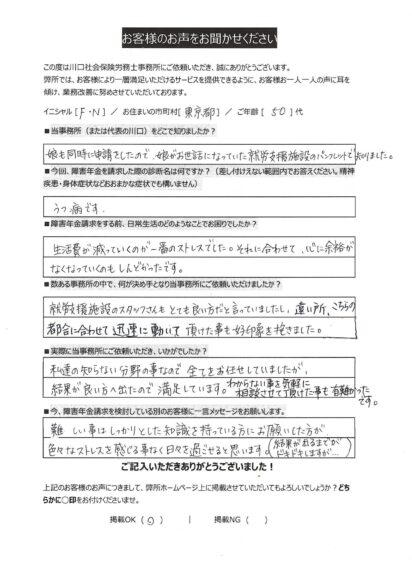 お客様のお声をお聞かせください
この度は川口社会保険労務士事務所にご依頼いただき、誠にありがとうございます。
弊所では、お客様により一層満足いただけるサービスを提供できるように、お客様お一人一人の声に耳を
傾け、業務改善に努めさせていただいております。
イニシャル [ F・N ] / お住まいの市町村 [ 東京都 ] / ご年齢 [ 50 ] 代
■当事務所（または代表の川口）をどこで知りましたか？
娘も同時に申請をしたので、娘がお世話になっていた就労支援施設のパンフレットで知りました。
■今回、障害年金を請求した際の診断名は何ですか？（差し付けえない範囲内でお答えください。精神
疾患・身体症状などおおまかな症状でも構いません）
うつ病です。
■障害年金請求をする前、日常生活のどのようなことでお困りでしたか？
生活費が減っていくのが一番のストレスでした。それに合わせて、心に余裕が
なくなっていくのもしんどかったです。
■数ある事務所の中で、何が決め手となり当事務所にご依頼いただけましたか？
就労支援施設のスタッフさんもとても良い方だと言っていましたし、遠い所、こちらの
都合に合わせて迅速に動いて頂けた事も好印象を抱きました。
■実際に当事務所にご依頼いただき、いかがでしたか？
私達の知らない分野の事なので全てをお任せしていましたが、
結果が良い方へ出たので満足しています。わからない事を気軽に
相談させて頂けた事も有難かった
です。
■今、障害年金請求を検討している別のお客様に一言メッセージをお願いします。
難しい事はしっかりとした知識を持っている方にお願いした方が
色々なストレスを感じる事なく日々を過ごせると思います。（結果が出るまでが
ドキドキしますが…）
ご記入いただきありがとうございました！
上記のお客様のお声につきまして、弊所ホームページ上に掲載させていただいてもよろしいでしょうか？どち
らかに〇印をお付けくださいませ。
掲載OK （ 〇 ） | 掲載NG （ ）